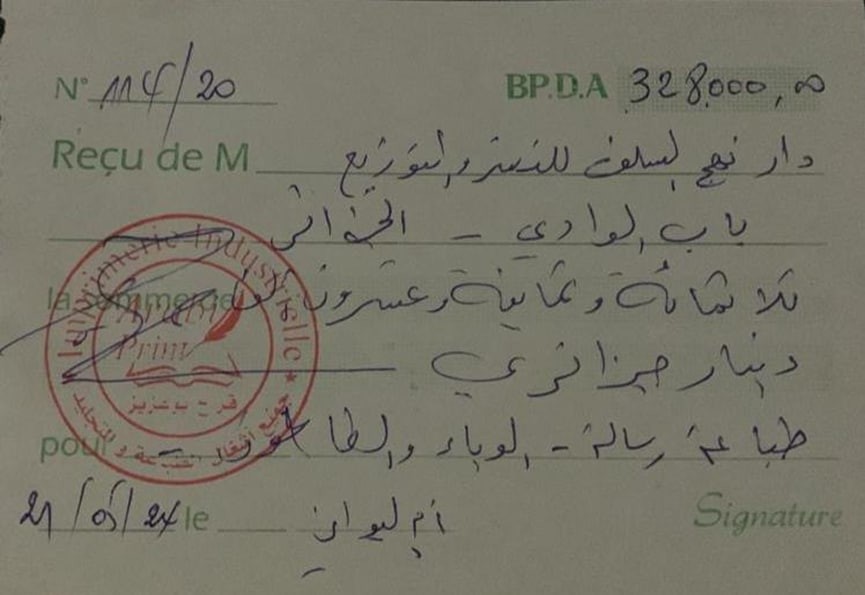 N° 114/20 BP.D.A 328.000,00
Reçu de M دار نهج السلف للنشر والتوزيع
باب الوادي - الجزائر
la somme de ثلاثمائة وثمانية وعشرون ألف
دينار جزائري
pour طباعة رسالة - الوباء والطاعون -
21/05/24 le أم البواقي Signature
Imprimerie Industrielle
Prim
فرح بوعزيز
جميع أشغال الطباعة و التجليد